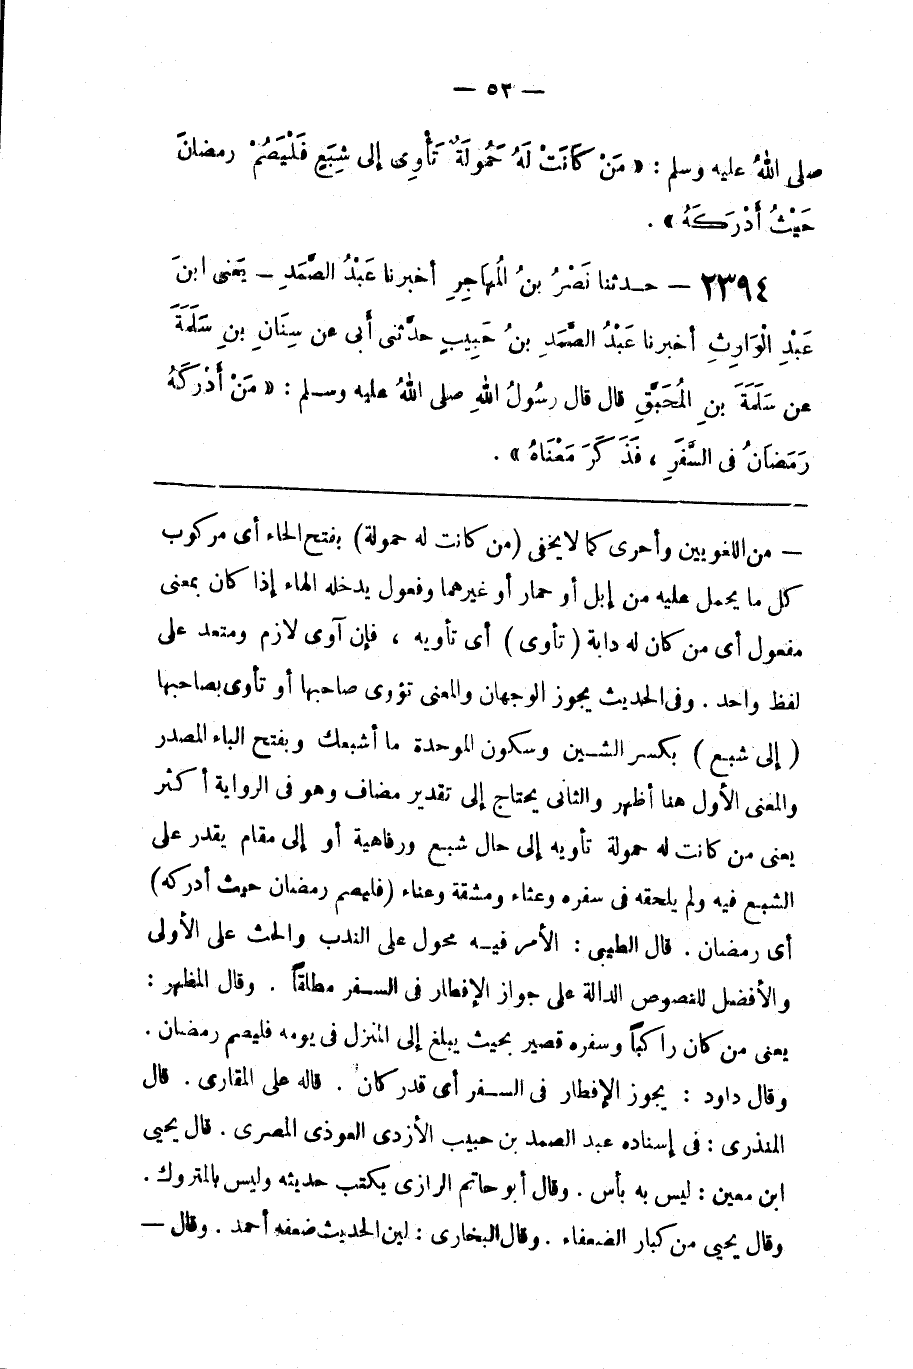 — ٥٣ —
صلى اللهُ عليه وسلم : « مَنْ كَانَتْ لَهُ حَمُولَةٌ تَأْوِى إلى شِبَعٍ فَلْيَصُمْ رمضانَ
حَيْثُ أَدْرَكَهُ » .
٢٣٩٤ — حـدثنا نَصْرُ بنُ الُمهَاجِرِ أخبرنا عَبْدُ الصَّمَدِ — يَعْنى ابنَ
عَبْدِ الْوَارِثِ أخبرنا عَبْدُ الصَّمَدِ بنُ حَبِيبٍ حدَّثنى أَبى عن سِنَانِ بنِ سَلَمَةَ
عن سَلَمَةَ بنِ الُمحَبَّقِ قال قال رسُولُ اللهِ صلى اللهُ عليه وسـلم : « مَنْ أَدْرَكَهُ
رَمَضَانُ فى السَّفَرِ ، فَذَكَرَ مَعْنَاهُ » .
— من اللغويين وأحرى كما لايخفى (من كانت له حمولة) بفتح الحاء أى مركوب
كل ما يحمل عليه من إبل أو حمار أو غيرهما وفعول يدخله الهاء إذا كان بمعنى
مفعول أى من كان له دابة ( تأوى ) أى تأويه ، فإن آوى لازم ومتعد على
لفظ واحد . وفى الحديث يجوز الوجهان والمعنى تؤوى صاحبها أو تأوى بصاحبها
( إلى شبـع ) بكسر الشـين وسكون الموحدة ما أشبعك وبفتح الباء المصدر
والمعنى الأول هنا أظهر والثانى يحتاج إلى تقدير مضاف وهو فى الرواية أكثر
يعنى من كانت له حمولة تأويه إلى حال شبـع ورفاهية أو إلى مقام يقدر على
الشبـع فيه ولم يلحقه فى سفره وعثاء ومشقة وعناء (فليصم رمضان حيث أدركه)
أى رمضان . قال الطيبى : الأمر فيـه محمول على الندب والحث على الأولى
والأفضل للنصوص الدالة على جواز الإفطار فى السـفر مطلقاً . وقال المظهر :
يعنى من كان راكباً وسفره قصير بحيث يبلغ إلى المنزل فى يومه فليصم رمضان .
وقال داود : يجوز الإفطار فى السـفر أى قدر كان . قاله على القارى . قال
المنذرى : فى إسناده عبد الصمد بن حبيب الأزدى العوذى البصرى . قال يحيى
ابن معين : ليس به بأس . وقال أبو حاتم الرازى يكتب حديثه وليس بالمتروك .
وقال يحيى من كبار الضعفاء . وقال البخارى : لين الحديث ضعفه أحمد . وقال —